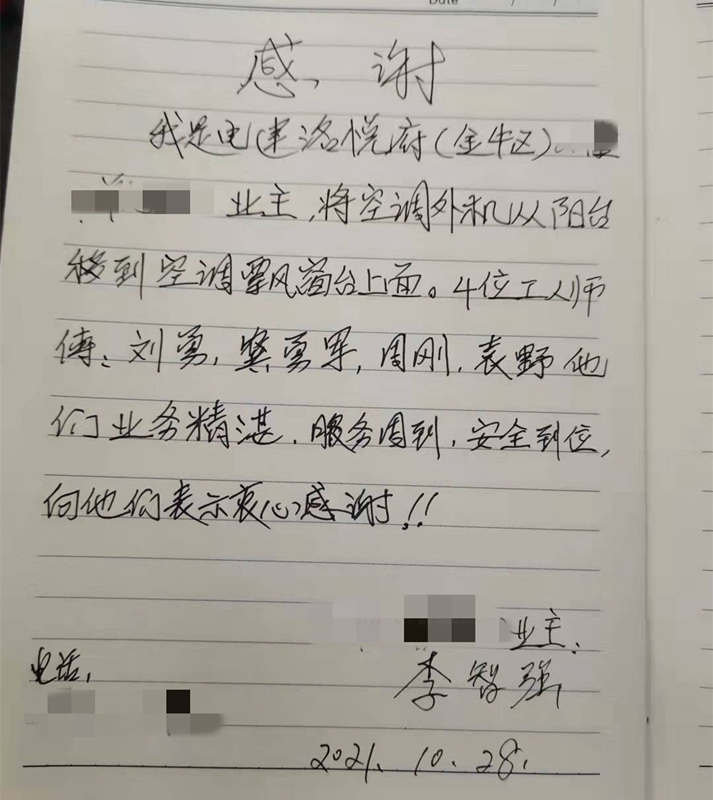 Date / /
感谢
我是电建洛悦府(金牛区)
业主,将空调外机从阳台
移到空调飘风窗台上面。4位工人师
傅:刘勇,龚勇军,周刚,袁野他
们业务精湛,服务周到,安全到位,
向他们表示衷心感谢!!
业主:
电话,
李智强
2021.10.28.